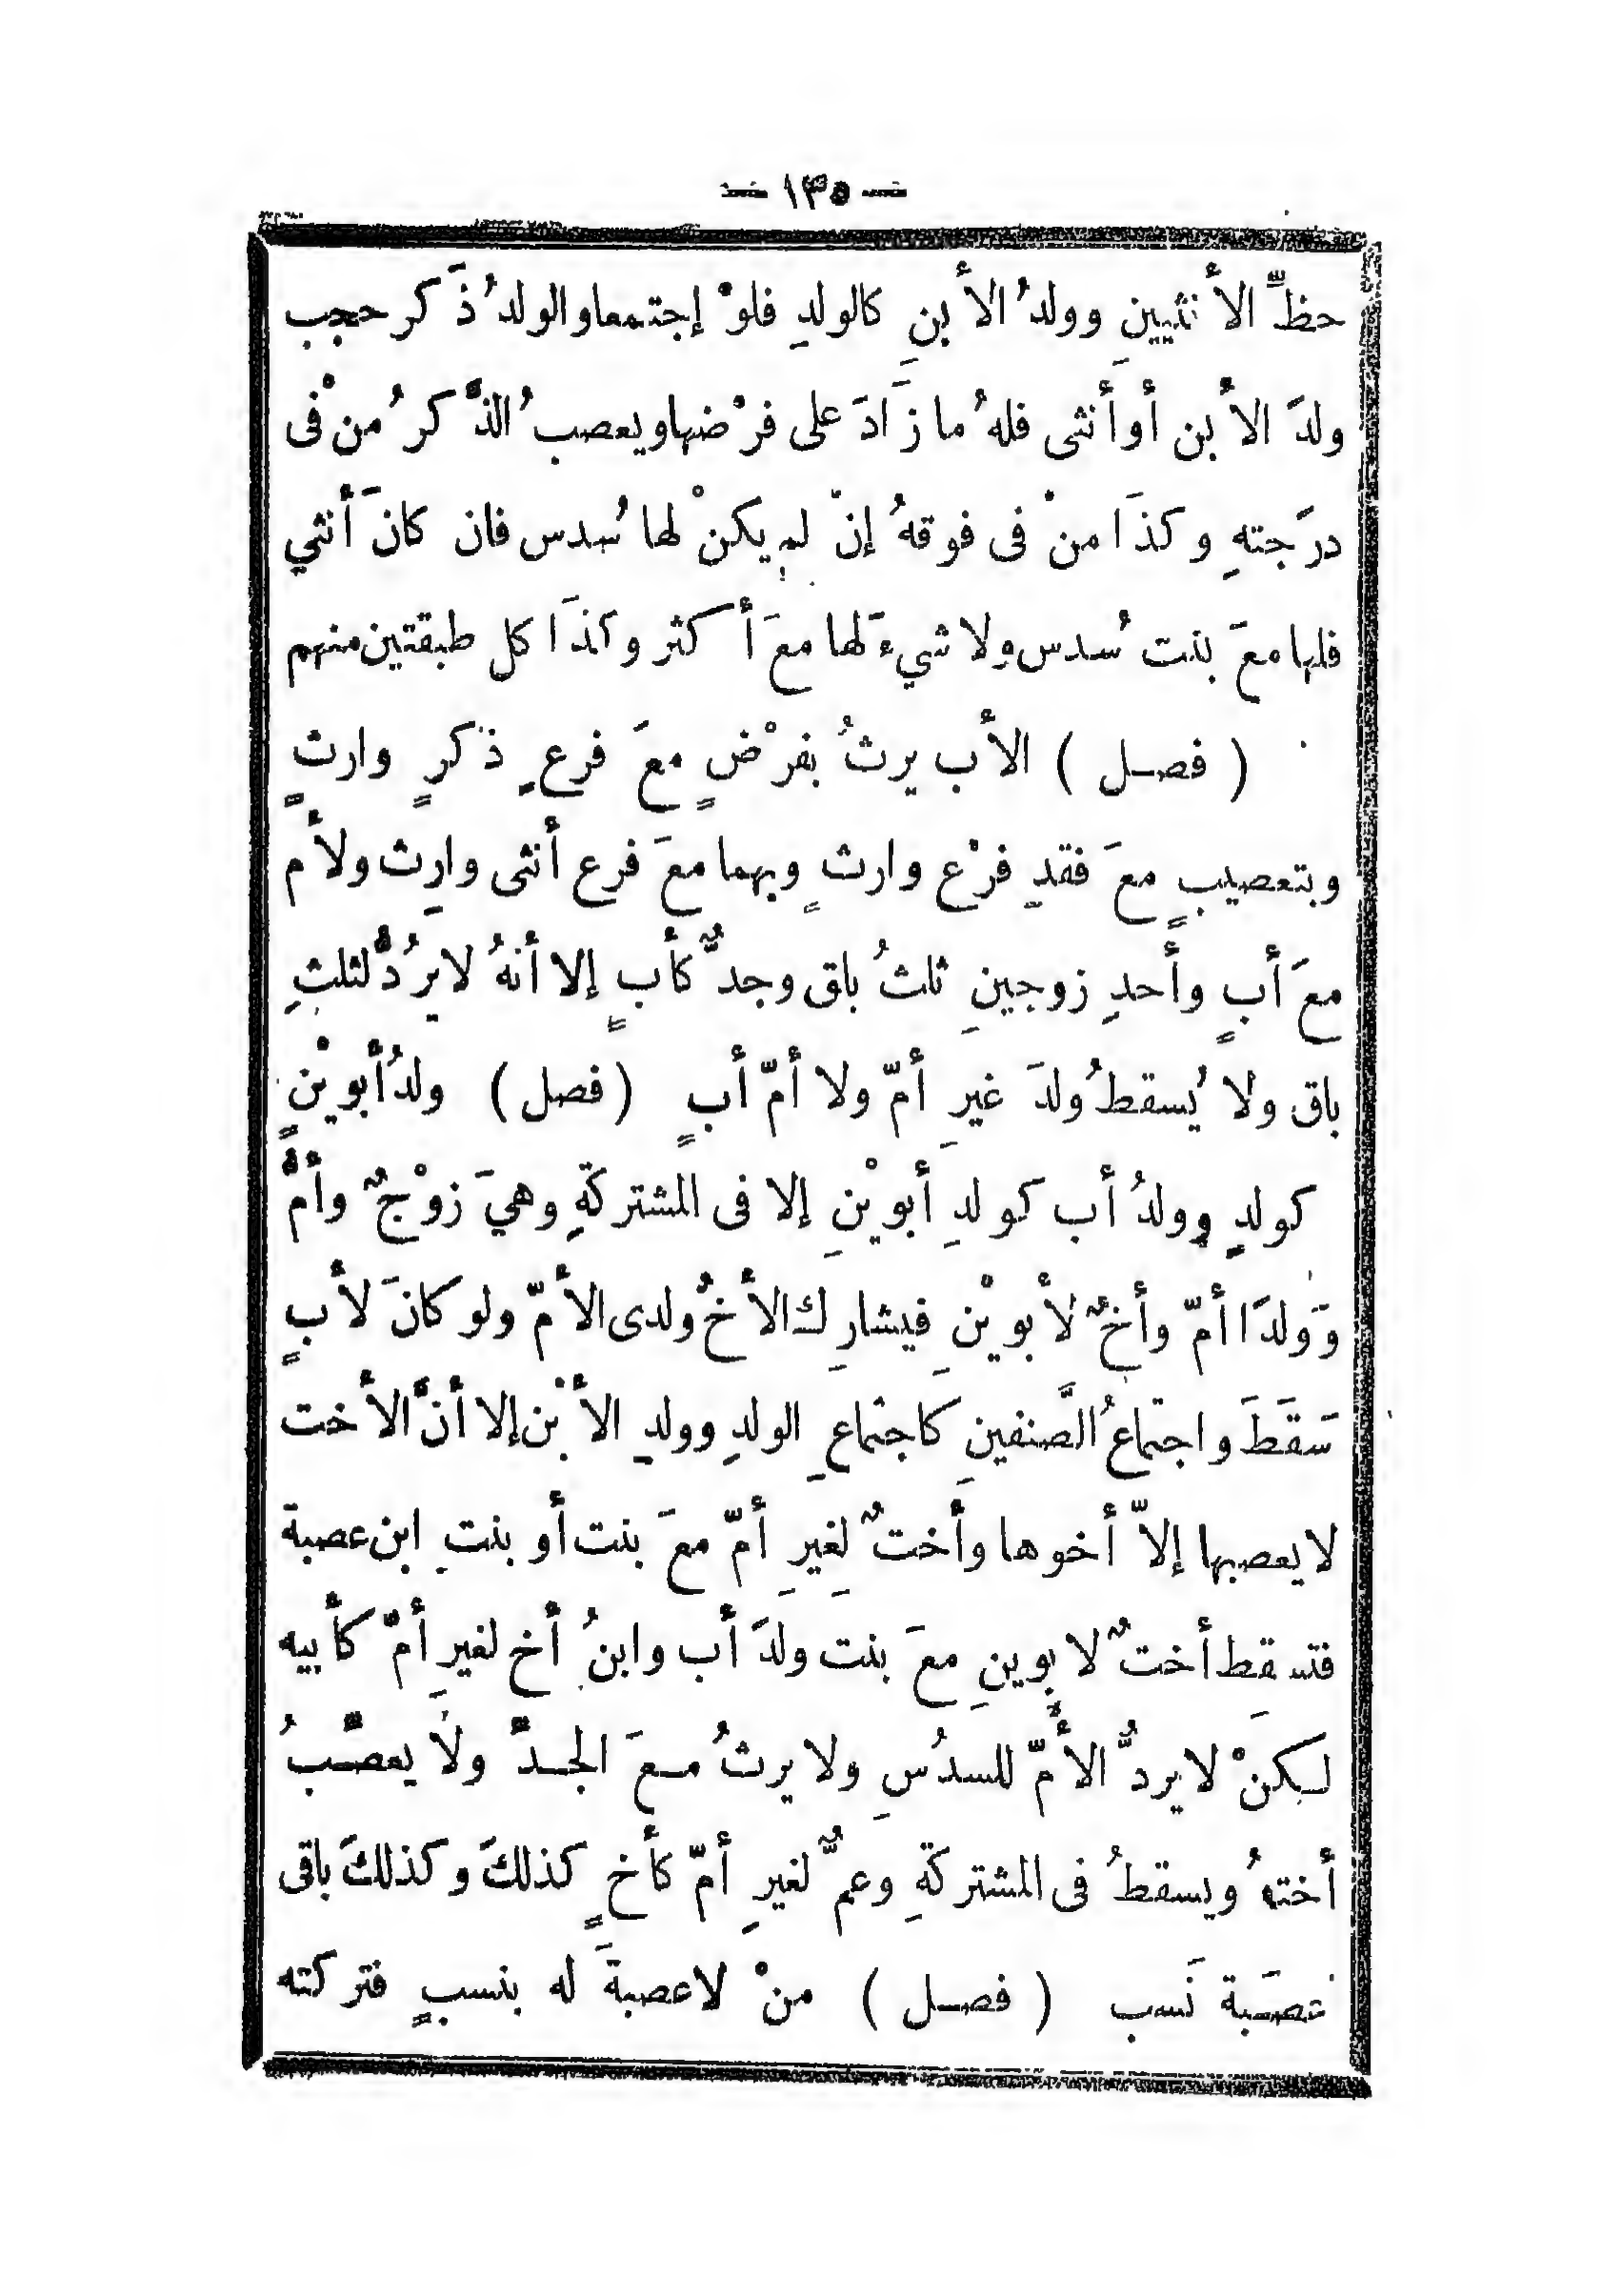 — ١٣٥ —
حظِّ الأنثيينِ وولدُ الأبنِ كالولدِ فلوْ إجتمعا والولدُ ذَكر حجب
ولدَ الأبن أو أنثى فلهُ ما زَادَ على فرْضها ويعصبُ الذَّكرُ منْ فى
درَجتهِ وكذَا منْ فى فوقهُ إنْ لم يكنْ لها سُدس فان كانَ أنثي
فلها معَ بنت سُدس ولا شيءَ لها معَ أكثر وكذَا كل طبقتين منهم
( فصل ) الأب يرثُ بفرْضٍ معَ فرعٍ ذكرٍ وارثٍ
وبتعصيبٍ معَ فقدِ فرْع وارثٍ وبهما معَ فرع أنثى وارِث ولأم
معَ أبٍ وأحدِ زوجينِ ثلثُ باق وجدٌّ كأبٍ إلا أنهُ لايرُدُّ لثلثِ
باق ولا يُسقطُ ولدَ غيرِ أمّ ولا أمّ أبٍ ( فصل ) ولدُ أبويْنٍ
كولدٍ وولدُ أب كولدِ أبويْنِ إلا فى المشتركةِ وهيَ زوْجٌ وأمٌّ
وَولدَا أمّ وأخٌ لأبويْنِ فيشارِك الأخُ ولدى الأمّ ولو كانَ لأبٍ
سَقَطَ واجتماعُ الصَّنفينِ كاجتماعِ الولدِ وولدِ الأبْن إلا أنَّ الأخت
لايعصبها إلاّ أخوها وأختٌ لِغيرِ أمّ معَ بنت أو بنتِ ابن عصبة
فتسقِط أختٌ لابوينِ معَ بنت ولدَ أب وابنُ أخ لغيرِ أمّ كأبيه
لكنْ لايردُّ الأُمّ للسدُسِ ولا يرثُ معَ الجدّ ولَا يعصّبُ
أختهُ ويسقطُ فى المشتركةِ وعمٌّ لغيرِ أمّ كأخٍ كذلكَ وكذلكَ باقى
عصَبة نَسب ( فصل ) منْ لاعصبةَ له بنسبٍ فتركته